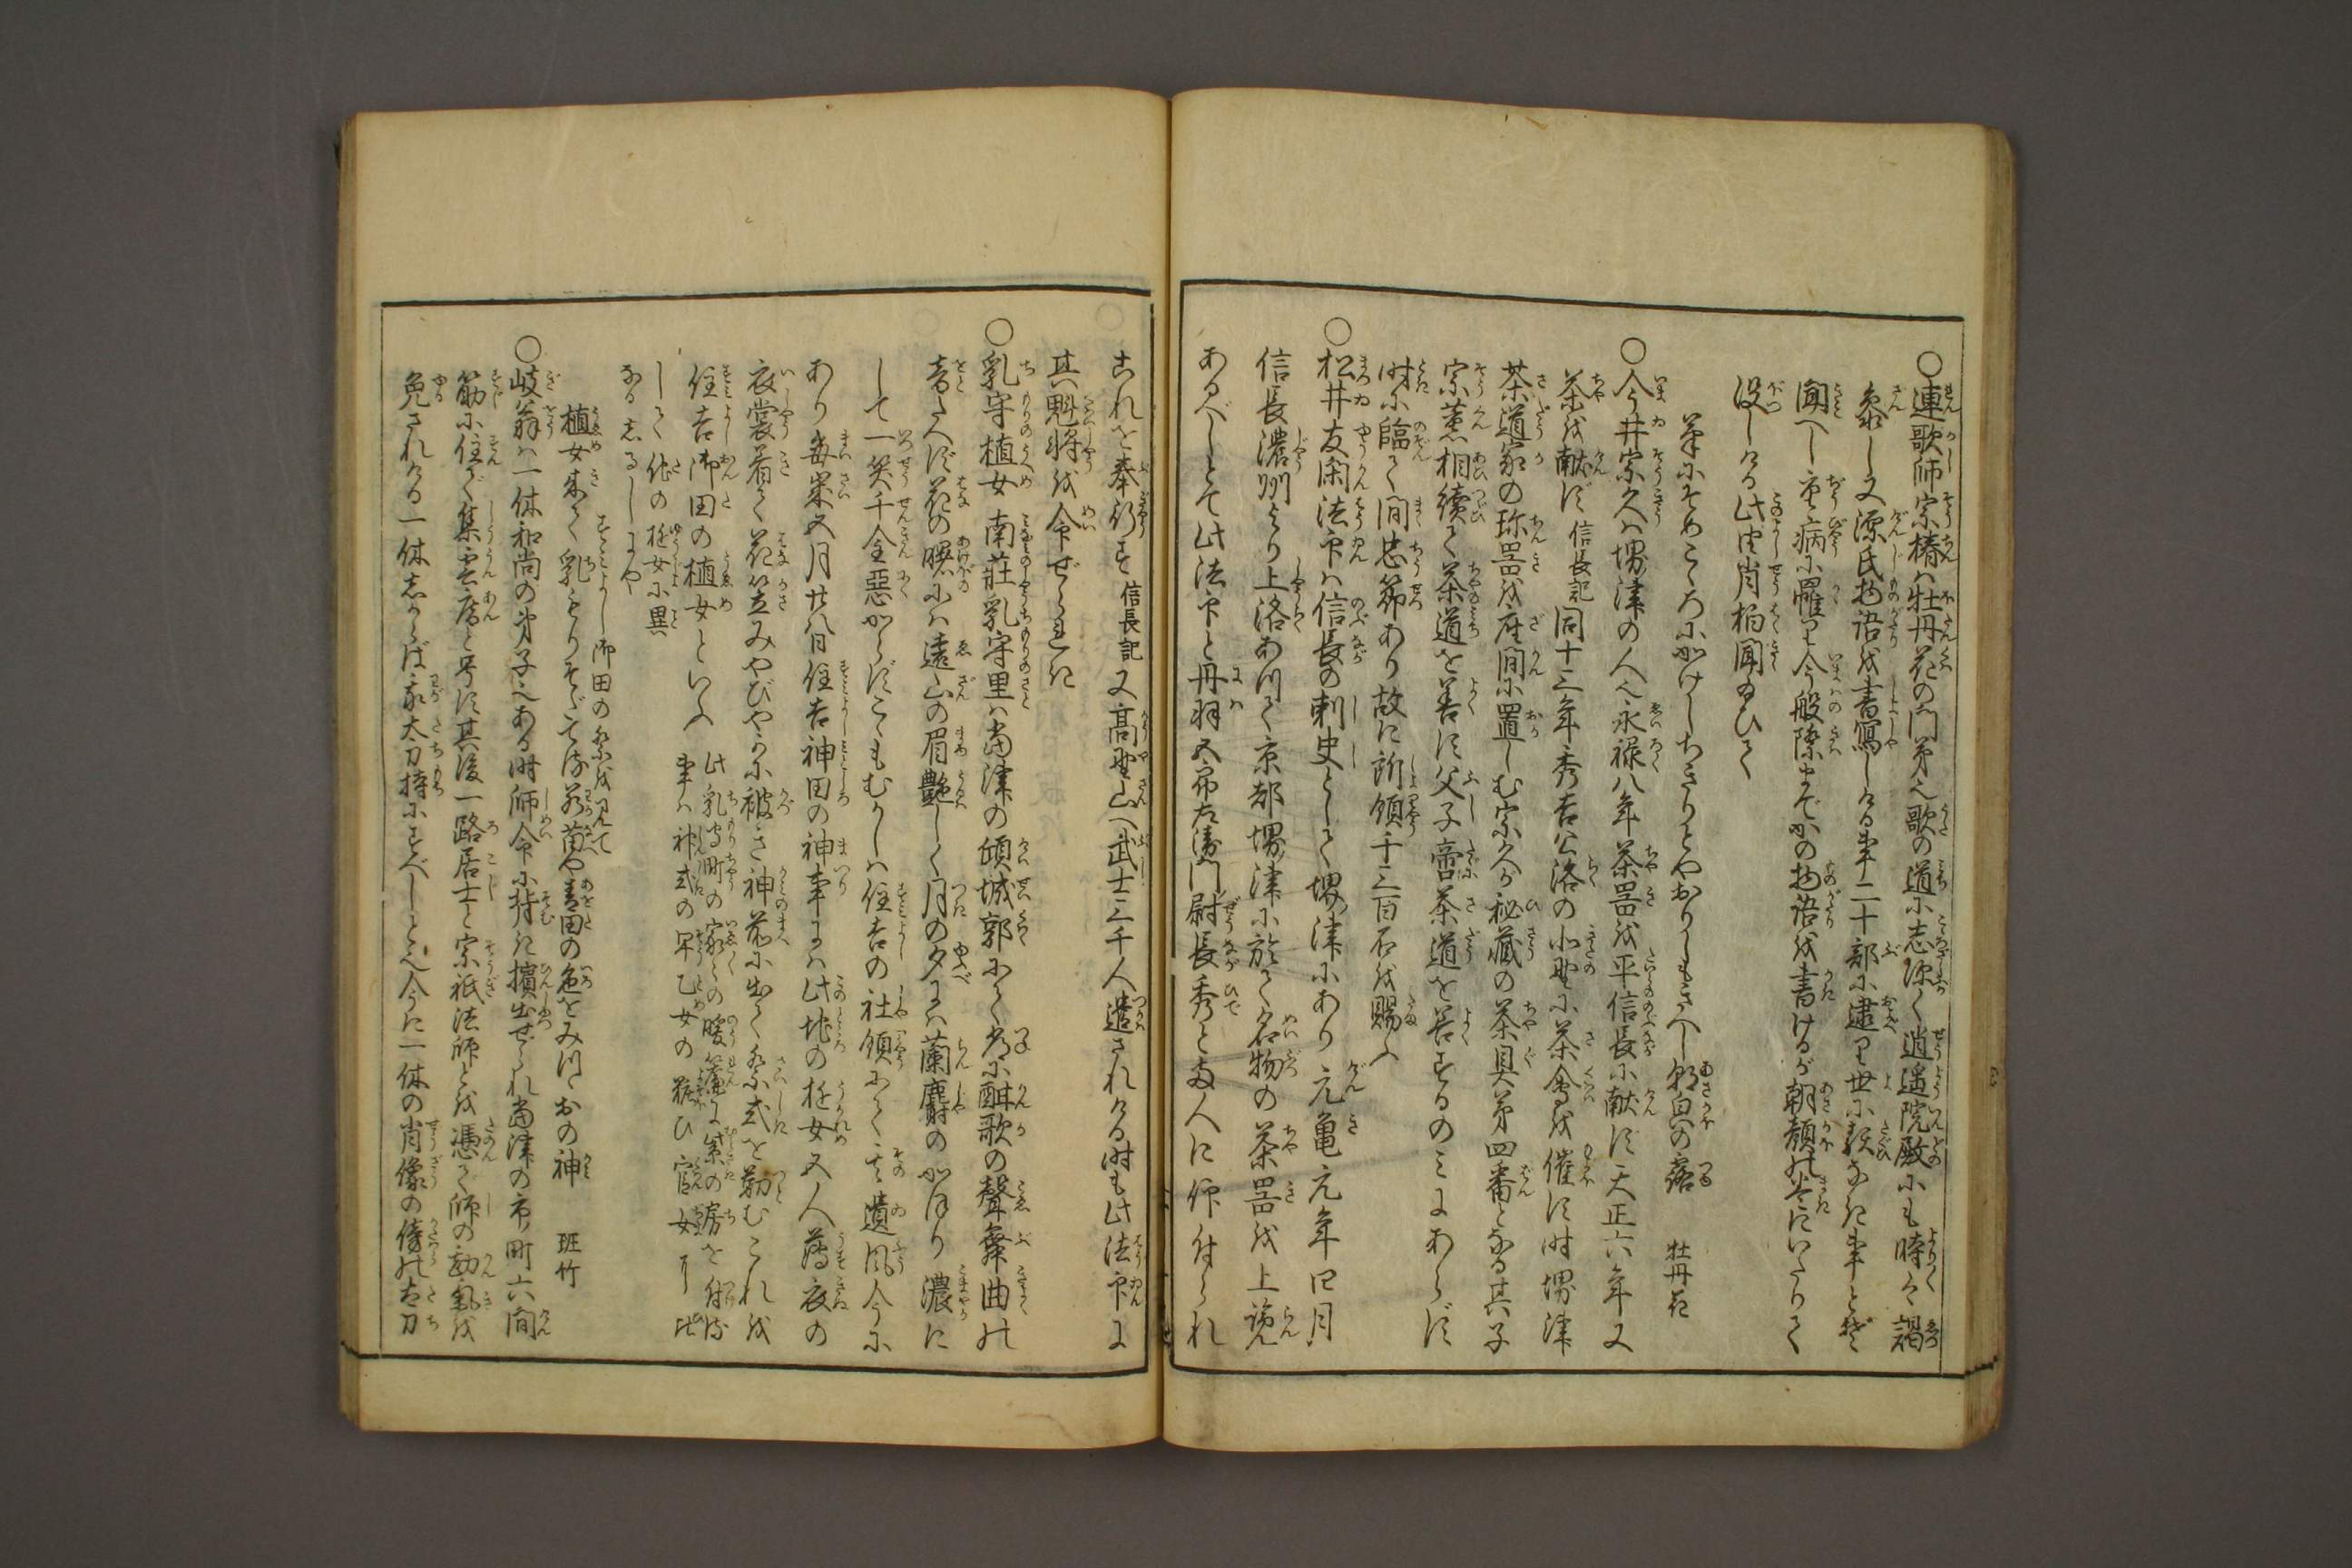 ○連歌師宗椿は牡丹花の門弟也歌の道に志深く逍遥院殿にも時々謁
参し又源氏物語を書写しける事二十部に逮り世に類なき事とぞ
聞へし重病に罹り今般際まで かの物語を書けるが朝顔の巻にいたりて
没しける此由肖柏聞給ひて
筆にそめこゝろにかけしちきりとやおりしもきへし朝皃の露 牡丹花
○今井宗久は堺津の人也永禄八年茶器を平信長に献ず天正六年又
茶を献ず 信長記 同十三年秀吉公洛の北野に茶会を催す時堺津
茶道家の珎器を座間に置しむ宗久が秘蔵の茶具第四番となる其子
宗薫相続て茶道を善す父子啻茶道を善するのみにあらず
時に臨て間忠節あり故に所領千三百石を賜ふ
○松井友閑法印は信長の刺史として堺津にあり元亀元年四月
信長濃州より上洛ありて京都堺津に於て名物の茶器を上覧
あるべしとて此法印と丹羽五郎左衛門尉長秀と両人に仰付られ
これを奉行す 信長記 又高野山へ武士三千人遣されける時も此法印に
其魁将を命ぜらるゝ
○乳守植女 南荘乳守里は当津の傾城郭にて常に酣歌の声舞曲の
音たへず花の曙には遠山の眉艶しく月の夕には蘭麝のかほり濃に
して一笑千金悪からずこゝもむかしは住吉の社領にて其遺風今に
あり毎歳五月廿八日住吉神田の神事には此地の遊女五人薄衣の
衣裳着て花笠みやびやかに被き神前に出て祭式を勤むこれを
住吉御田の植女といふ 此乳守町の家々の暖簾に紫の房を付る
事は神式の早乙女の粧ひ官女に比
して他の遊女に異
なるしるしにや
すみよし御田の祭を見て
植女来て乳もりそだてる若苗や青田の色をみつおの神 班竹
○岐翁は一休和尚の弟子也ある時師命に背き擯出せられ当津の市町六間
筋に住て集雲庵と号す其後一路居士と宗祇法師とを憑て師の勘気を
免されける一休しからば我太刀持にすべしと也今に一休の肖像の傍の太刀